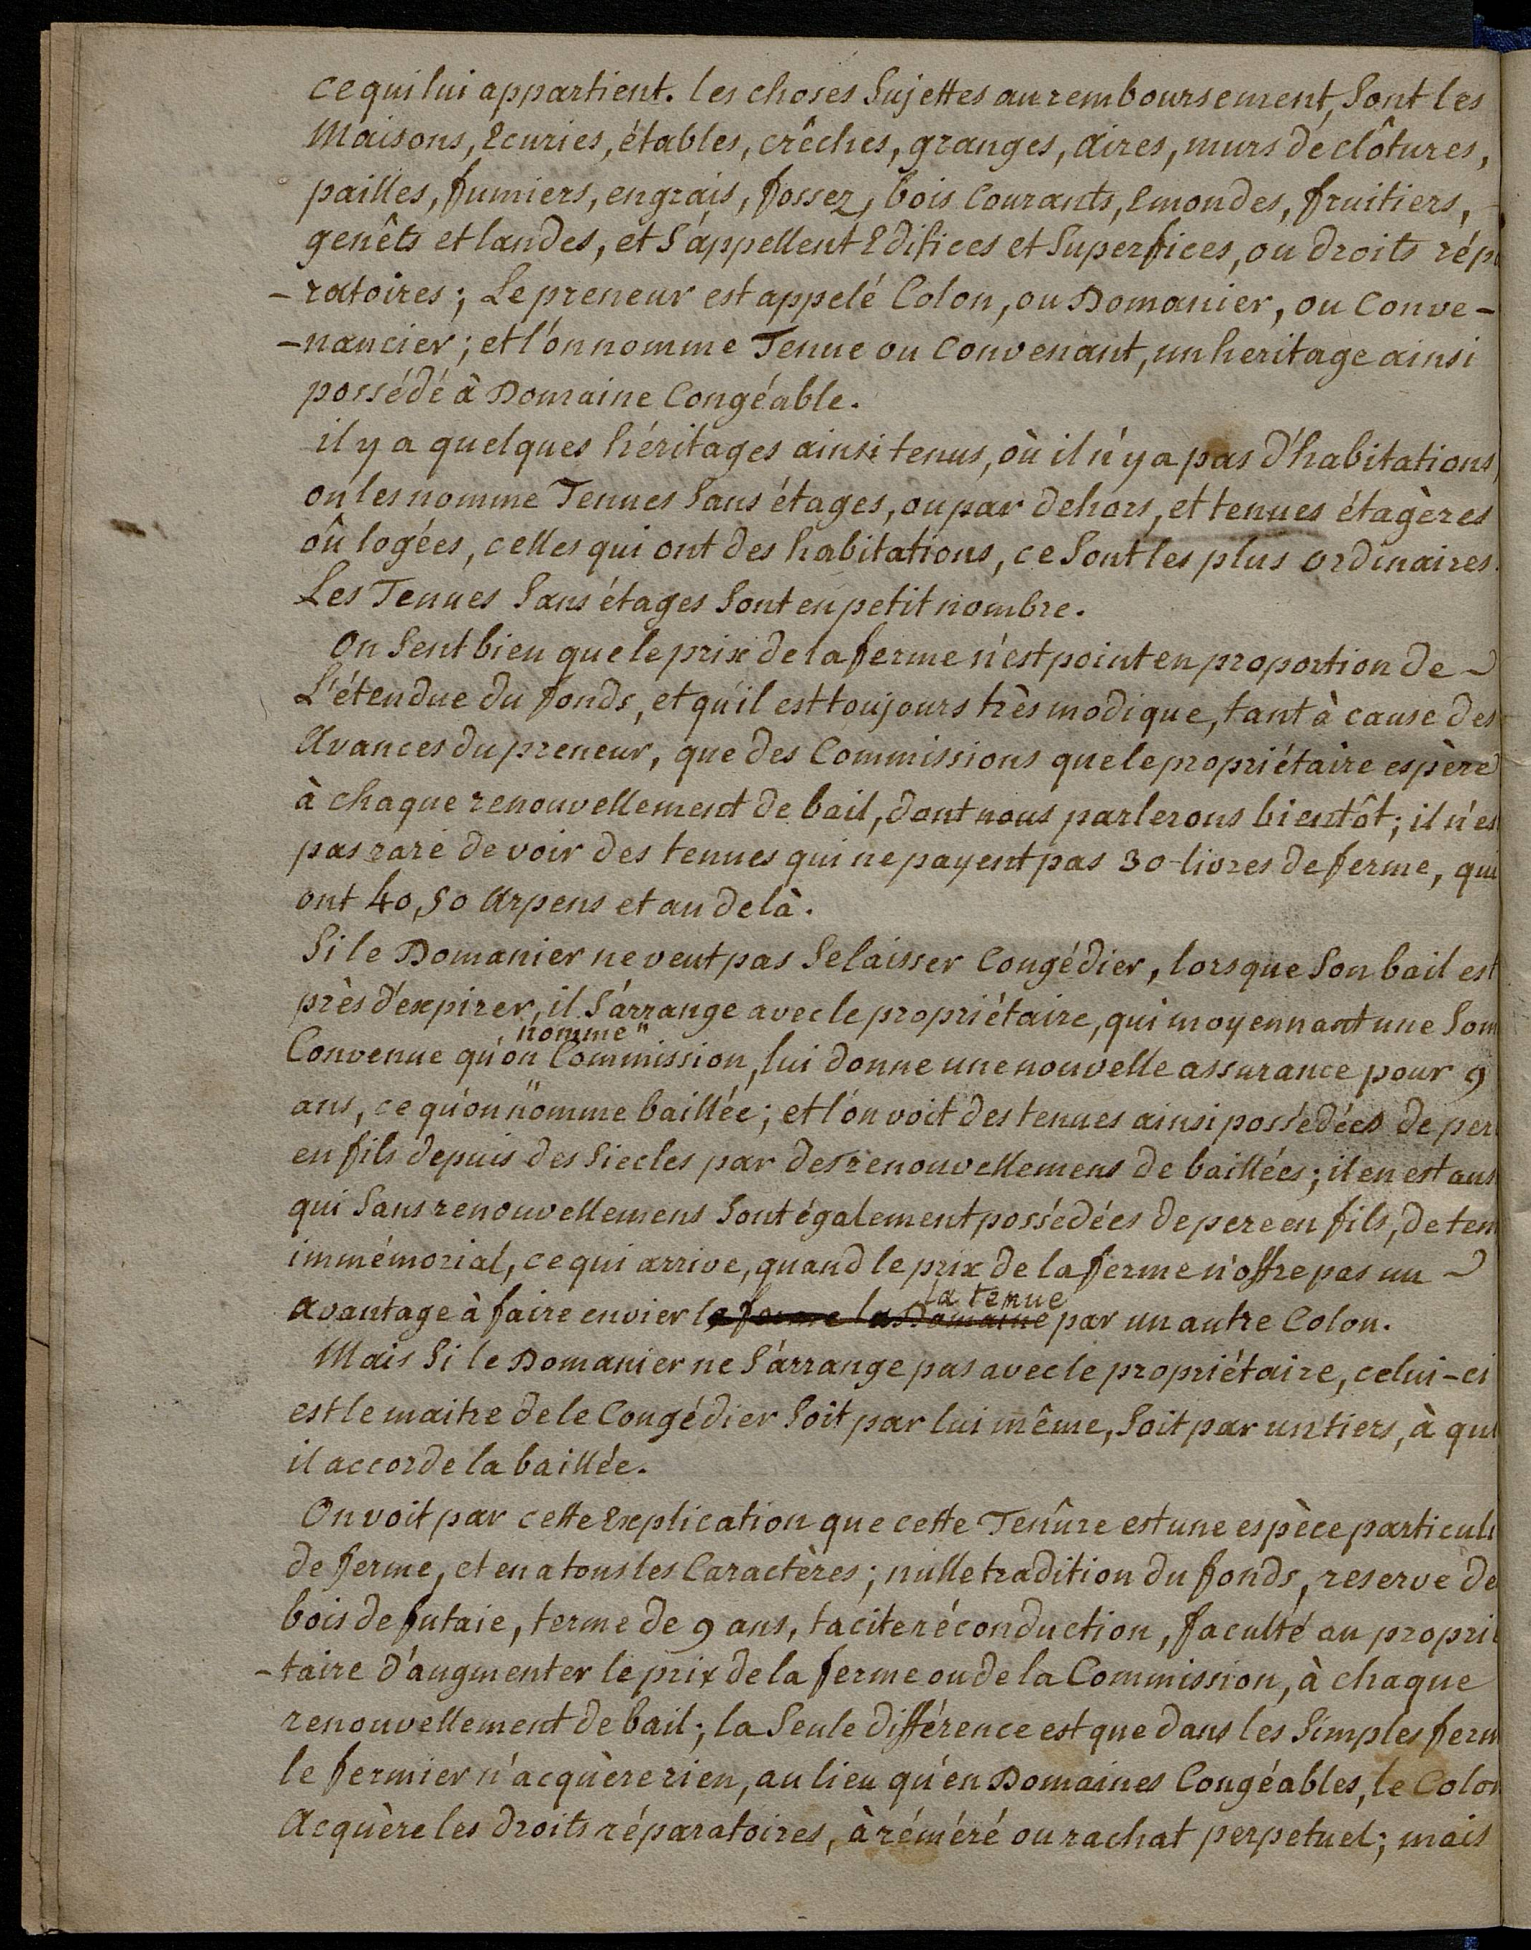 ce qui lui appartient. les choses Sujettes au remboursement, Sont les
Maisons, Ecuries, étables, crêches, granges, aires, murs de clôtures,
pailles, fumiers, engrais, fossez, bois Courants, Emondes, fruitiers,
genêts et landes, et S'appellent Edifices et Superfices, ou droits rép
-ratoires; Le preneur est appelé Colon, ou Domanier, ou Conve-
-nancier; et l'on nomme Tenue ou Convenant, un heritage ainsi
possédé à Domaine Congéable.
il y a quelques héritages ainsi tenus, où il n'y a pas d'habitations,
on les nomme Tenues Sans étages, ou par dehors, et tenues étagères
oû logées, celles qui ont des habitations, ce Sont les plus ordinaires.
Les Tenues Sans étages Sont en petit nombre.
On Sent bien que le prix de la ferme n'est point en proportion de
L'étendue du fonds, et qu'il est toujours très modique, tant à cause des
Avances du preneur, que des Commissions que le propriétaire espère
à chaque renouvellement de bail, dont nous parlerons bientôt; il n'es
pas rare de voir des tenues qui ne payent pas 30 livres de ferme, qui
ont 40, 50 Arpens et au delà.
Si le Domanier ne veut pas Se laisser Congédier, lorsque Son bail est
près d'expirer, il S'arrange avec le propriétaire, qui moyennant une Som
nomme"
Convenue qu'on Commission, lui donne une nouvelle assurance pour 9
ans, ce qu'on nomme baillée; et l'on voit des tenues ainsi possédées de per
en fils depuis des Siecles par des renouvellemens de baillées; il en est aus
qui Sans renouvellemens Sont également possédées de pere en fils, de tem
immémorial, ce qui arrive, quand le prix de la ferme n'offre pas un
la tenue
avantage à faire envier le ferme la Domaine par un autre Colon.
Mais Si le Domanier ne S'arrange pas avec le propriétaire, celui-ci
est le maitre de le Congédier Soit par lui même, Soit par un tiers, à qui
il accorde la baillée.
On voit par cette Explication que cette Tenûre est une espèce particuli
de ferme, et en a tous les Caractères; nulle tradition du fonds, reserve de
bois de futaie, terme de 9 ans, tacite réconduction, faculté au proprié
-taire d'augmenter le prix de la ferme ou de la Commission, à chaque
renouvellement de bail; la Seule différence est que dans les Simples ferm
le fermier n'acquère rien, au lieu qu'en Domaines Congéables, le Colon
Acquère les droits réparatoires, à réméré ou rachat perpetuel; mais